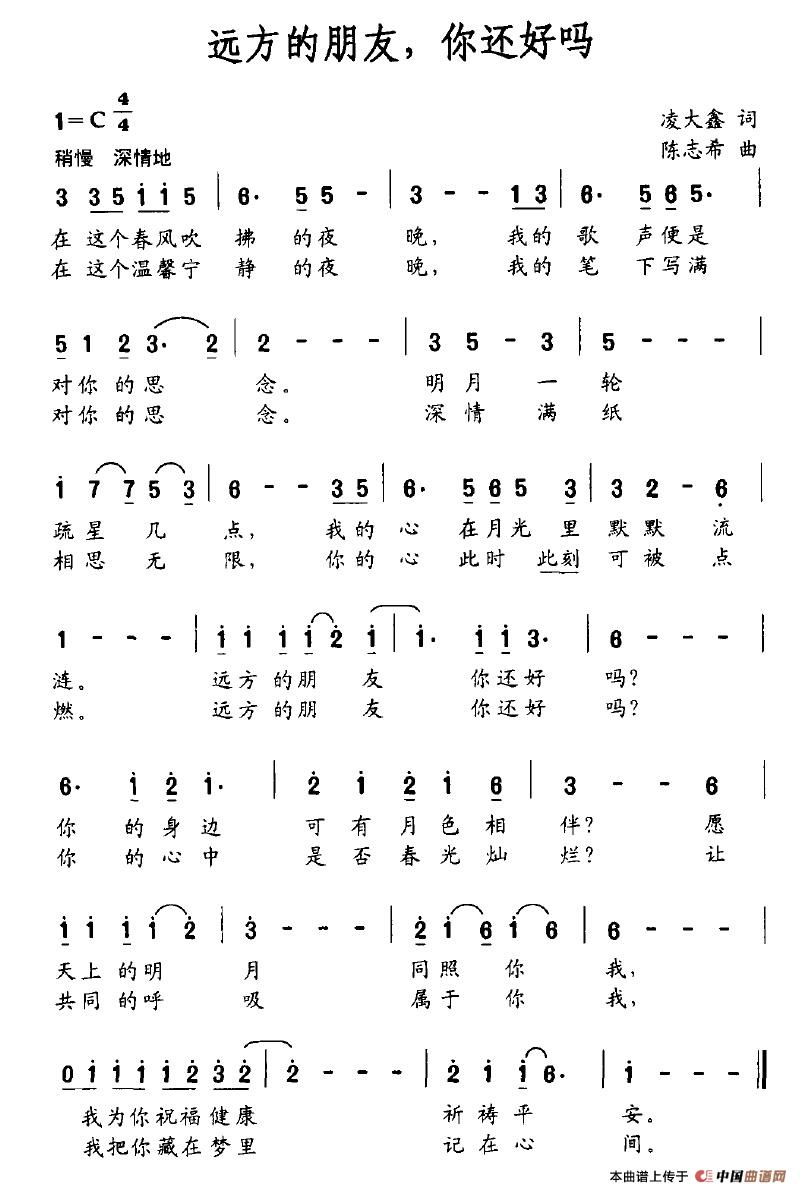 远方的朋友，你还好吗
1=C 4/4
凌大鑫 词
稍慢 深情地
陈志希 曲
3 3 5 1 1 5 | 6· 5 5 | 3 - - 1 3 | 6· 5 6 5· |
在 这个春风吹 拂 的夜 晚， 我的 歌 声便是
在 这个温馨宁 静 的夜 晚， 我的 笔 下写满
5 1 2 3· 2 | 2 - - - | 3 5 - 3 | 5 - - - |
对你 的思 念。 明月 一 轮
对你 的思 念。 深情 满 纸
1 7 7 5 3 | 6 - - 3 5 | 6· 5 6 5 3 | 3 2 - 6
疏星 几 点， 我的 心 在月光 里 默默 流
相思 无 限， 你的 心 此时 此刻 可被 点
1 - - - | 1 1 1 1 2 1 | 1· 1 1 3· | 6 - - - |
涟。 远方 的朋 友 你还好 吗？
燃。 远方 的朋 友 你还好 吗？
6· 1 2 1· | 2 1 2 1 6 | 3 - - 6 |
你 的身边 可有月色相 伴？ 愿
你 的心中 是否春光灿 烂？ 让
1 1 1 1 2 | 3 - - - | 2 1 6 1 6 | 6 - - - |
天上 的明 月 同照 你 我，
共同 的呼 吸 属于 你 我，
0 1 1 1 2 3 2 | 2 - - - | 2 1 1 6· | 1 - - ‖
我为你祝福健康 祈祷平 安。
我把你藏在梦里 记在心 间。
本曲谱上传于 中国曲谱网